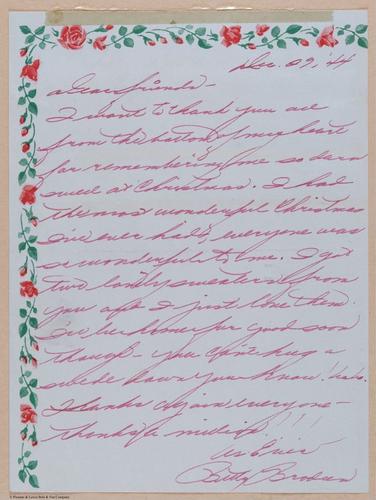 Dec. 29, '44
Dear friends -
I want to thank you all
from the bottom of my heart
for remembering me so darn
sweet at Christmas. I had
the most wonderful Christmas
I've ever had, everyone was
so wonderful to me. I got
two lovely sweaters from
you all & I just love them.
I'll be home for good soon
though - you can't a
down you know! ha ha.
Thanks again everyone -
thanks a million!!!
As Ever
Betty